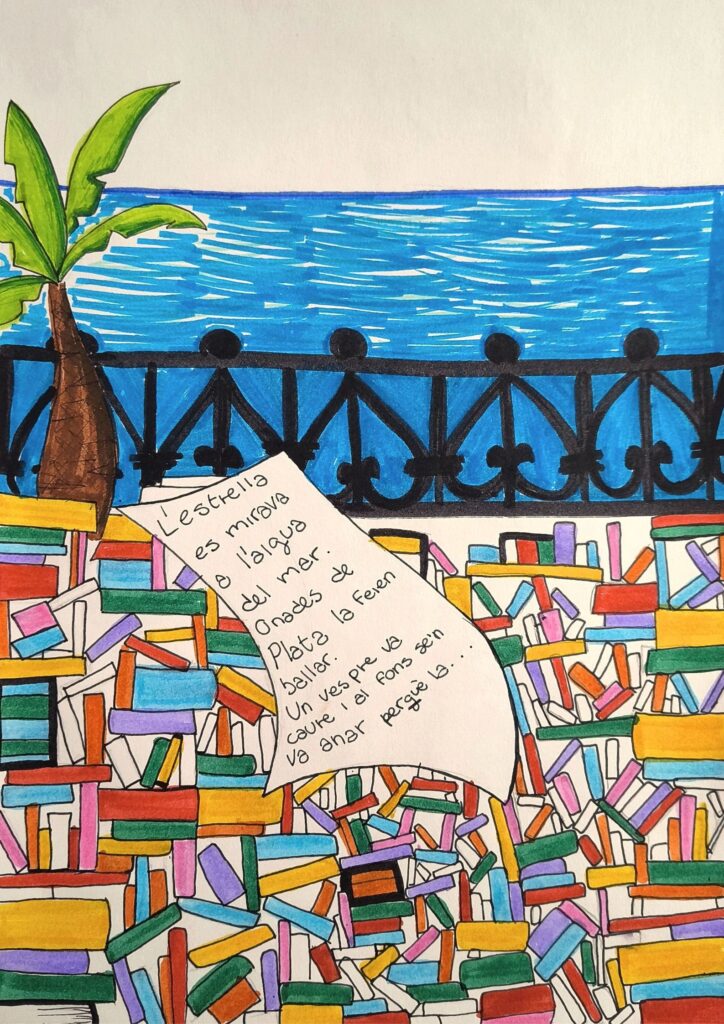 L'estrella
es mirava
a l'aigua
del mar.
Onades de
Plata la Feien
ballar.
Un vespre va
caure i al fons se'n
va anar perquè la...